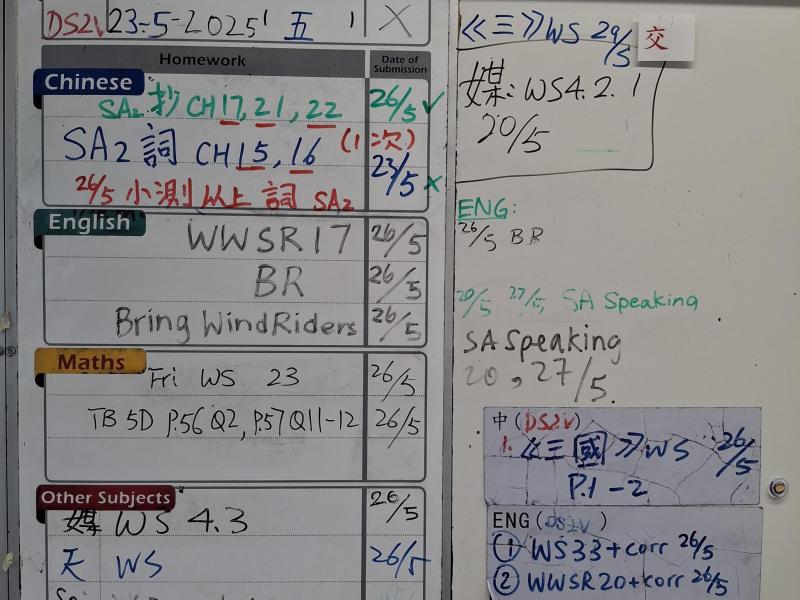 DS2V 23-5-2025 五 1 X
Homework Date of Submission
Chinese
SA2 抄 CH17, 21, 22 26/5 ✓
SA2 詞 CH15, 16 (1次) 23/5 x
26/5 小測以上 詞 SA2
English
WWSR17 26/5
BR 26/5
Bring WindRiders 26/5
Maths
Fri WS 23 26/5
TB 5D P.56 Q2, P.57 Q11-12 26/5
Other Subjects
媒 WS 4.3 26/5
天 WS 26/5
《三》WS 29/5 交
媒: WS4.2.1
20/5
ENG:
26/5 BR
20/5 27/5 SA Speaking
SA Speaking
20, 27/5
中 (DS2V)
1. 《三國》WS 26/5
P.1-2
ENG (DS2V)
① WS33+corr 26/5
② WWSR20+corr 26/5